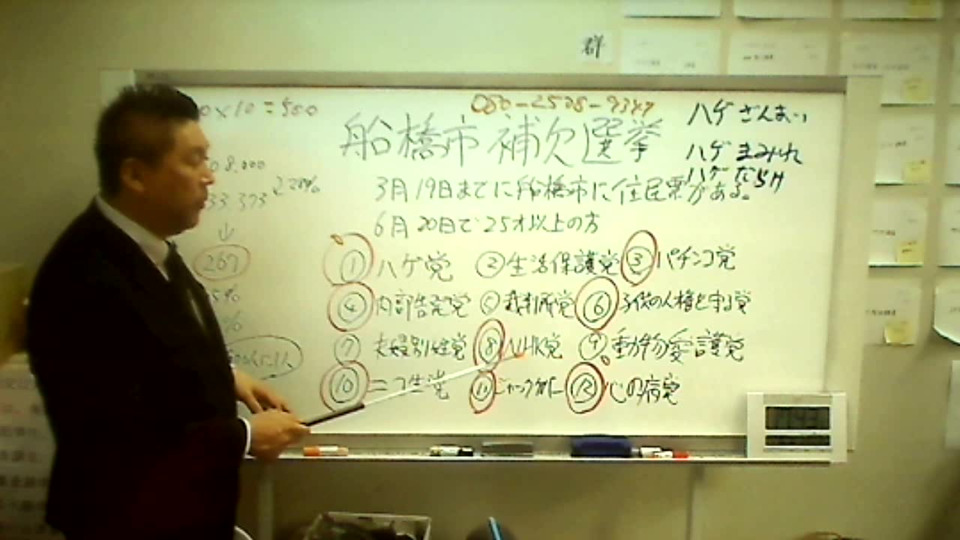 群
080-2508-9347
ハゲ ざんまい
ハゲ まみれ
ハゲ だらけ
船橋市補欠選挙
3月19日までに船橋市に住民票がある。
6月20日で25才以上の方
① ハゲ党 ② 生活保護党 ③ パチンコ党
④ 内部告発党 ⑤ 裁判所党 ⑥ 子供の人権を守る党
⑦ 夫婦別姓党 ⑧ NHK党 ⑨ 動物愛護党
⑩ ニコ生党 ⑪ ⑫ 心の病党
0×10=500
8.000
33 373
↓
267